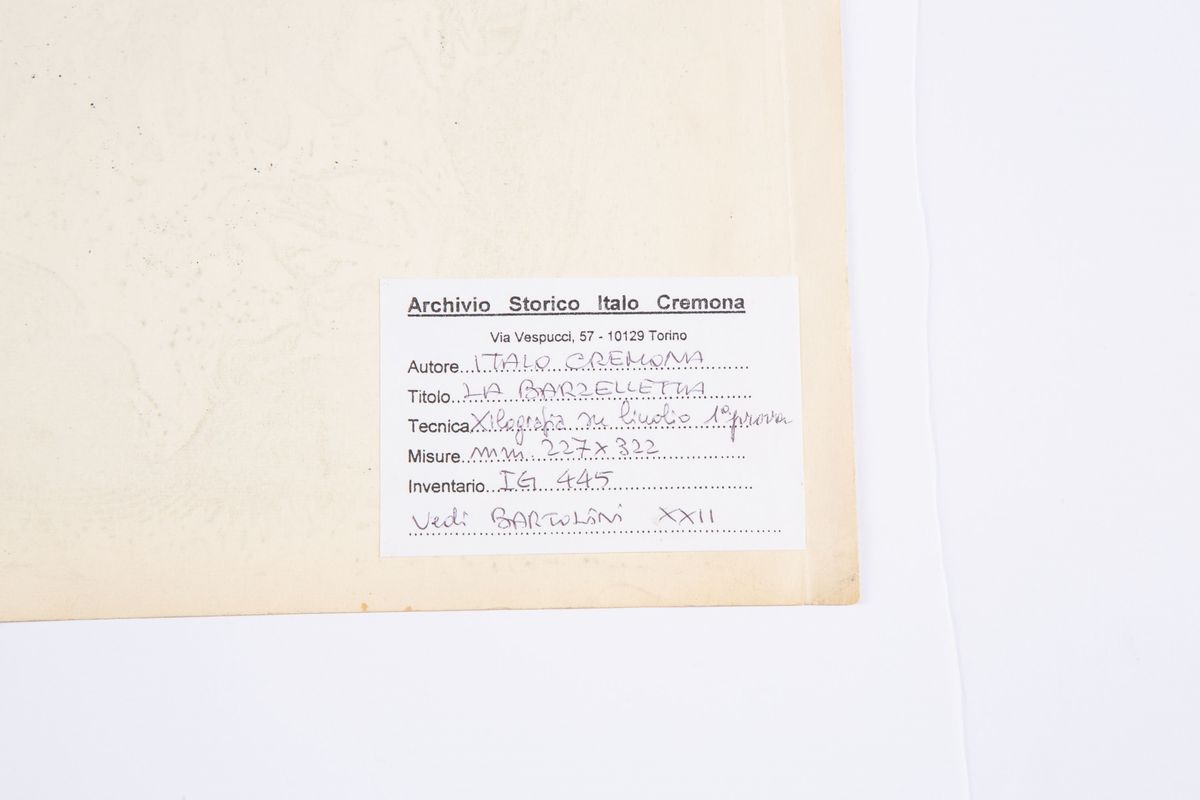 Archivio Storico Italo Cremona
Via Vespucci, 57 - 10129 Torino
Autore ITALO CREMONA
Titolo LA BARZELLETTA
Tecnica Xilografia su linolio 1° prova
Misure mm. 227 x 322
Inventario IG 445
Vedi BARTOLINI XXII